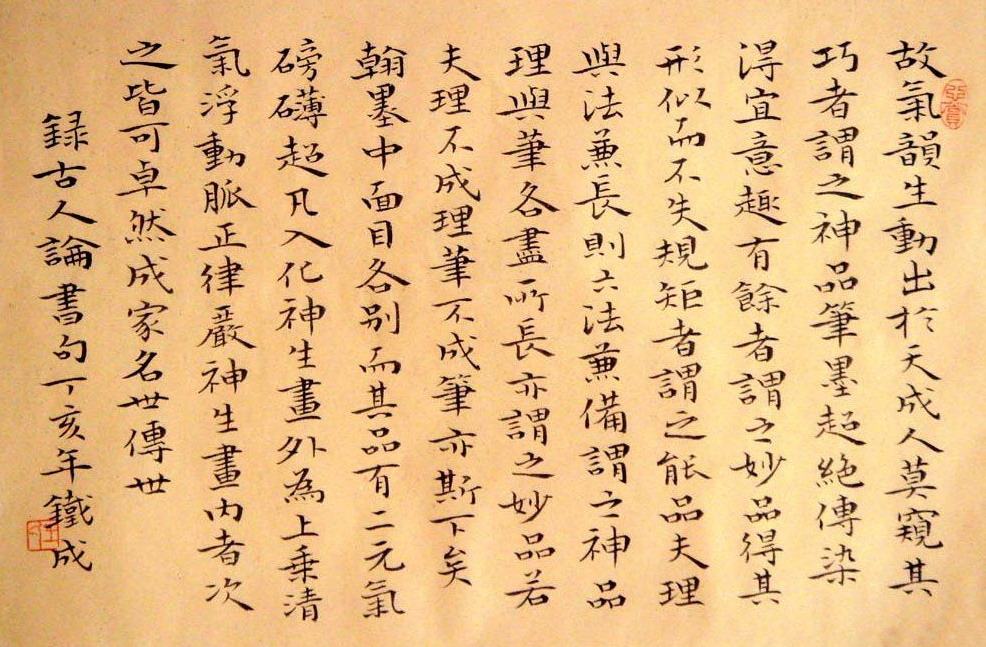 故氣韻生動出於天成人莫窺其
巧者謂之神品筆墨超絕傳染
得宜意趣有餘者謂之妙品得其
形似而不失規矩者謂之能品夫理
與法兼長則六法兼備謂之神品
理與筆各盡所長亦謂之妙品若
夫理不成理筆不成筆亦斯下矣
翰墨中面目各别而其品有二元氣
磅礴超凡入化神生畫外為上乗清
氣浮動脈正律嚴神生畫内者次
之皆可卓然成家名世傳世
録古人論書句丁亥年鐵成